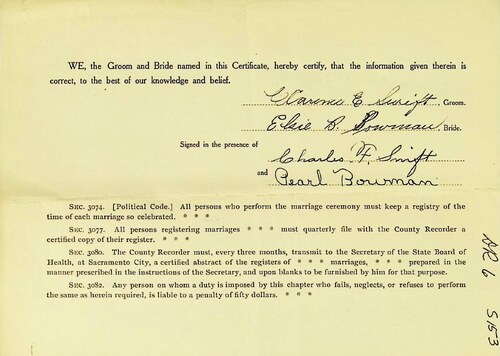 WE, the Groom and Bride named in this Certificate, hereby certify, that the information given therein is
correct, to the best of our knowledge and belief.
Clarence E Swift, Groom.
Elsie B. Bowman, Bride.
Signed in the presence of
Charles F. Swift
and
Pearl Bowman
SEC. 3074. [Political Code.] All persons who perform the marriage ceremony must keep a registry of the
time of each marriage so celebrated. * * *
SEC. 3077. All persons registering marriages * * * must quarterly file with the County Recorder a
certified copy of their register. * * *
SEC. 3080. The County Recorder must, every three months, transmit to the Secretary of the State Board of
Health, at Sacramento City, a certified abstract of the registers of * * * marriages, * * * prepared in the
manner prescribed in the instructions of the Secretary, and upon blanks to be furnished by him for that purpose.
SEC. 3082. Any person on whom a duty is imposed by this chapter who fails, neglects, or refuses to perform
the same as herein required, is liable to a penalty of fifty dollars. * * *
6